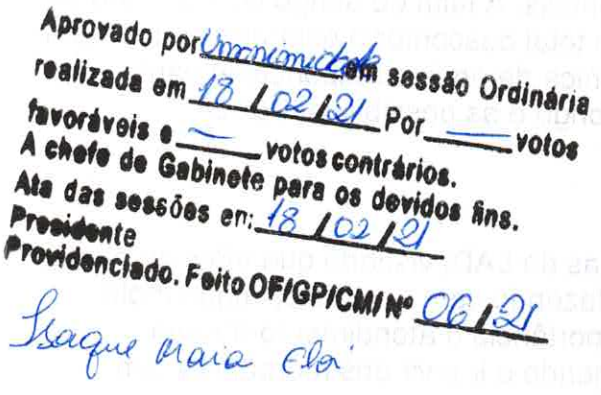 Aprovado por Unanimidade em sessão Ordinária
realizada em 18 / 02 / 21 Por — votos
favoráveis e — votos contrários.
A chefe de Gabinete para os devidos fins.
Ata das sessões em: 18 / 02 / 21
Presidente
Providenciado. Feito OF/GP/CMI Nº 06 / 21
Isaque Maia Eloi